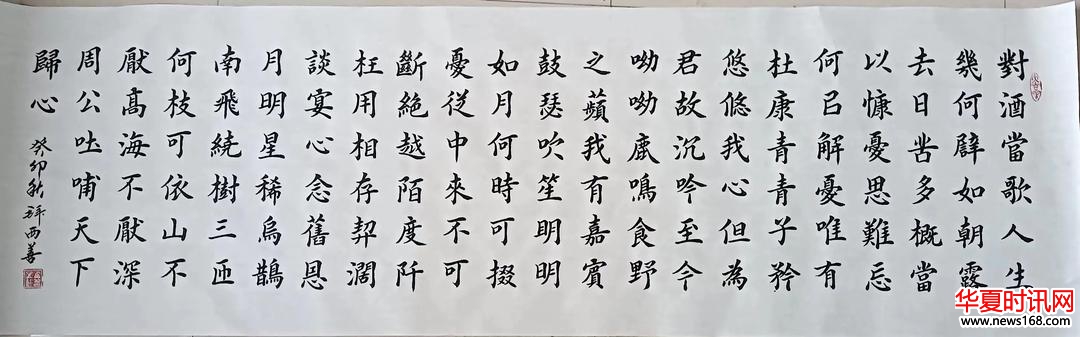 對酒當歌人生
幾何譬如朝露
去日苦多概當
以慷憂思難忘
何㠯解憂唯有
杜康青青子衿
悠悠我心但為
君故沉吟至今
呦呦鹿鳴食野
之蘋我有嘉賓
鼓瑟吹笙明明
如月何時可掇
憂從中來不可
斷絕越陌度阡
枉用相存契濶
談宴心念舊恩
月明星稀烏鵲
南飛繞樹三匝
何枝可依山不
厭髙海不厭深
周公吐哺天下
歸心
癸卯秋西善
华夏时讯网
www.news168.com